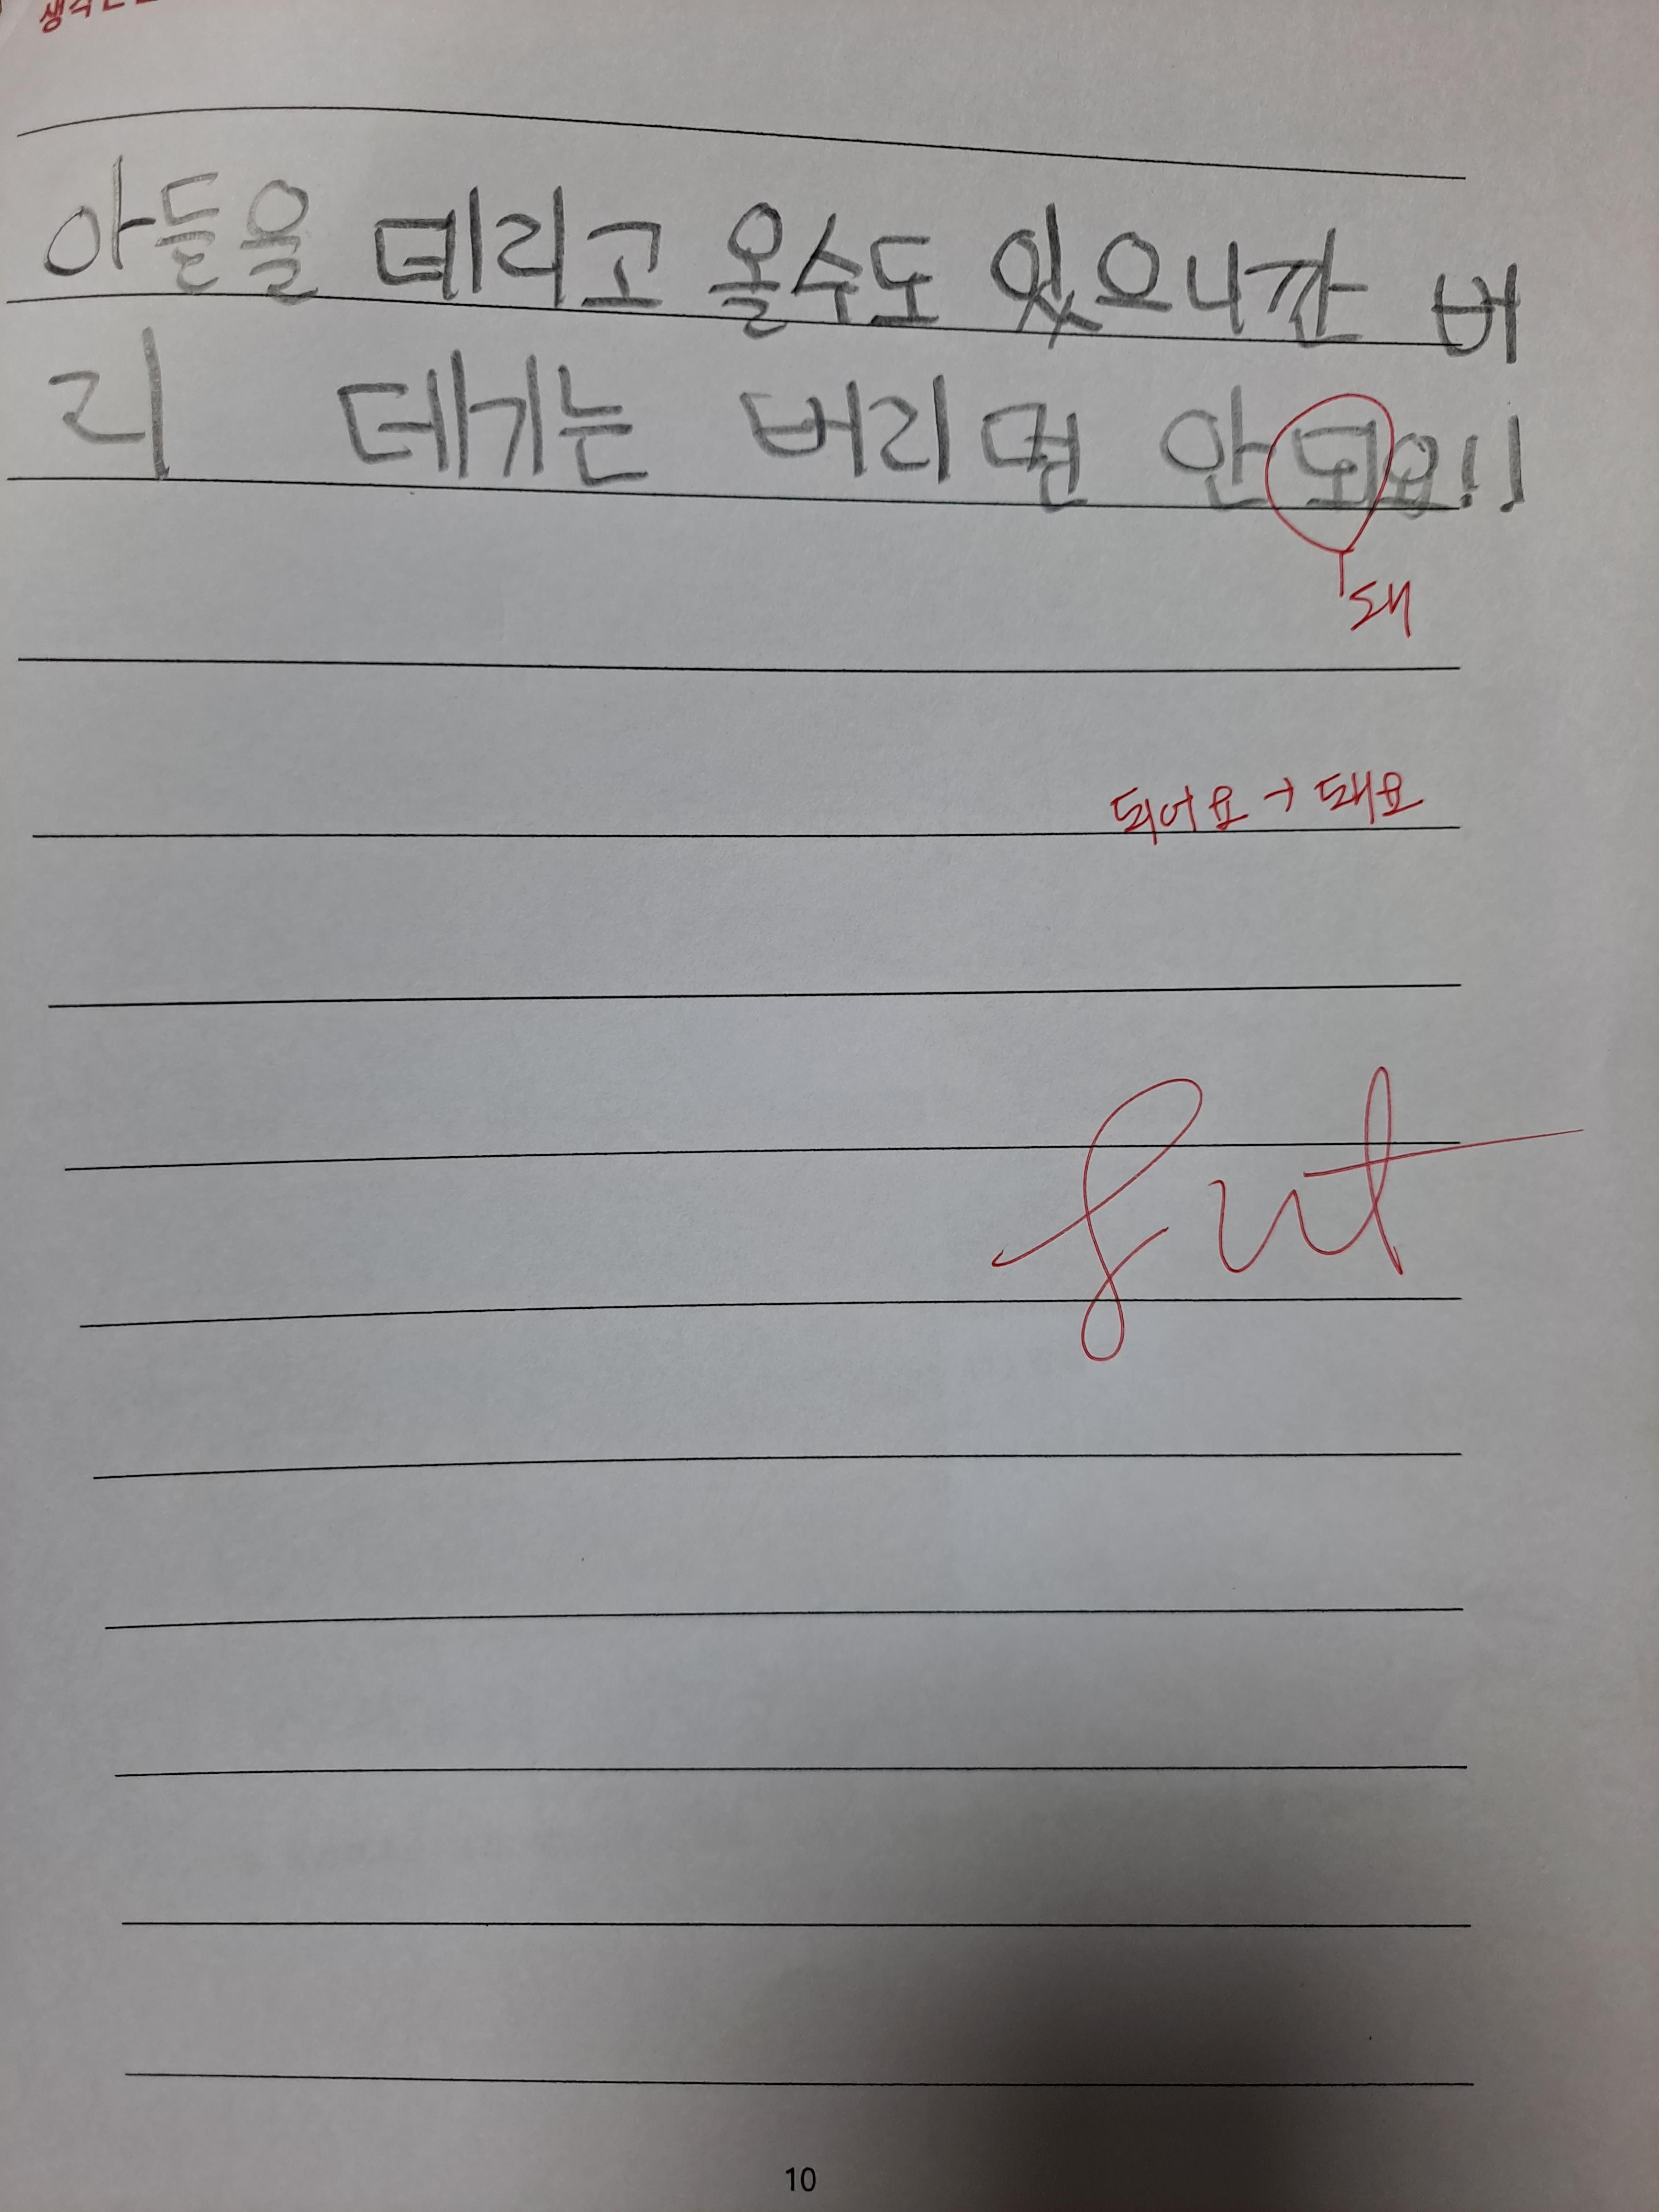 아들을 데리고 올수도 있으니깐 버
리 데기는 버리면 안 되요!!
돼
되어요 → 돼요
10